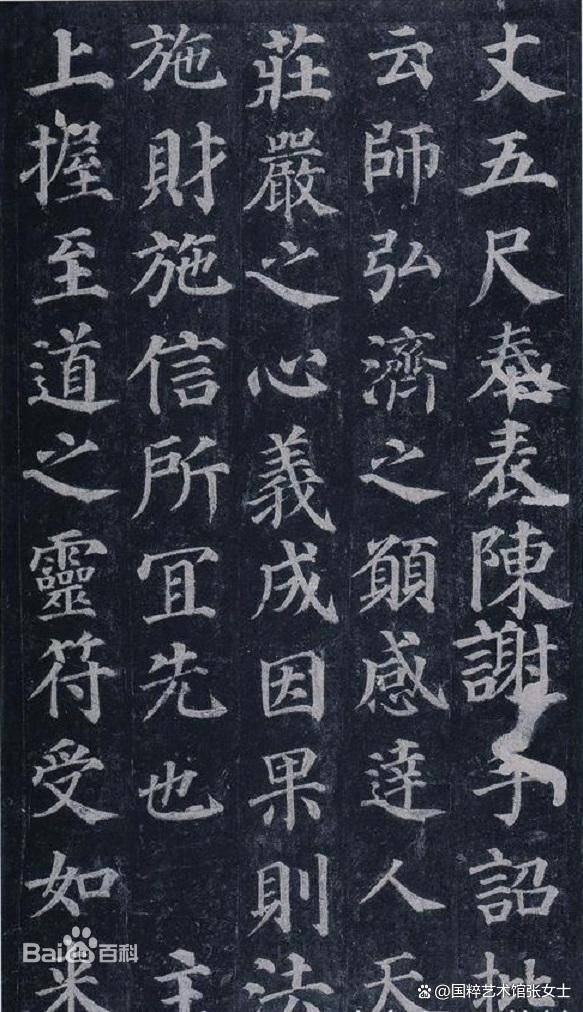 丈五尺奉表陳謝手詔批
云師弘濟之願感達人天
莊嚴之心義成因果則法
施財施信所冝先也　主
上握至道之靈符受如来
Baidu百科
@国粹艺术馆张女士